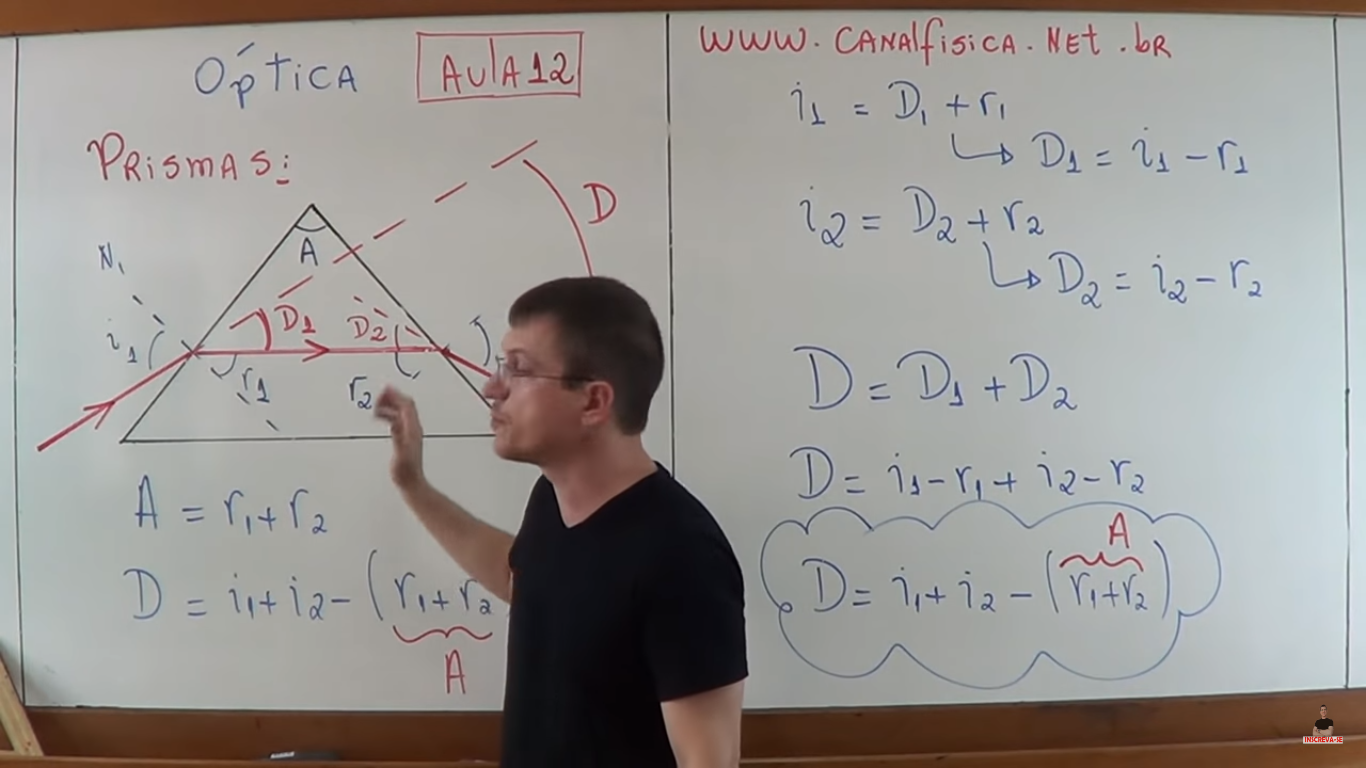 Óptica
Aula 12
Prismas:
N₁
i₁
A
D₁
D₂
r₁
r₂
D
A = r₁ + r₂
D = i₁ + i₂ - (r₁ + r₂
A
www.canalfisica.net.br
i₁ = D₁ + r₁
↳ D₁ = i₁ - r₁
i₂ = D₂ + r₂
↳ D₂ = i₂ - r₂
D = D₁ + D₂
D = i₁ - r₁ + i₂ - r₂
A
D = i₁ + i₂ - (r₁ + r₂)
INSCREVA-SE